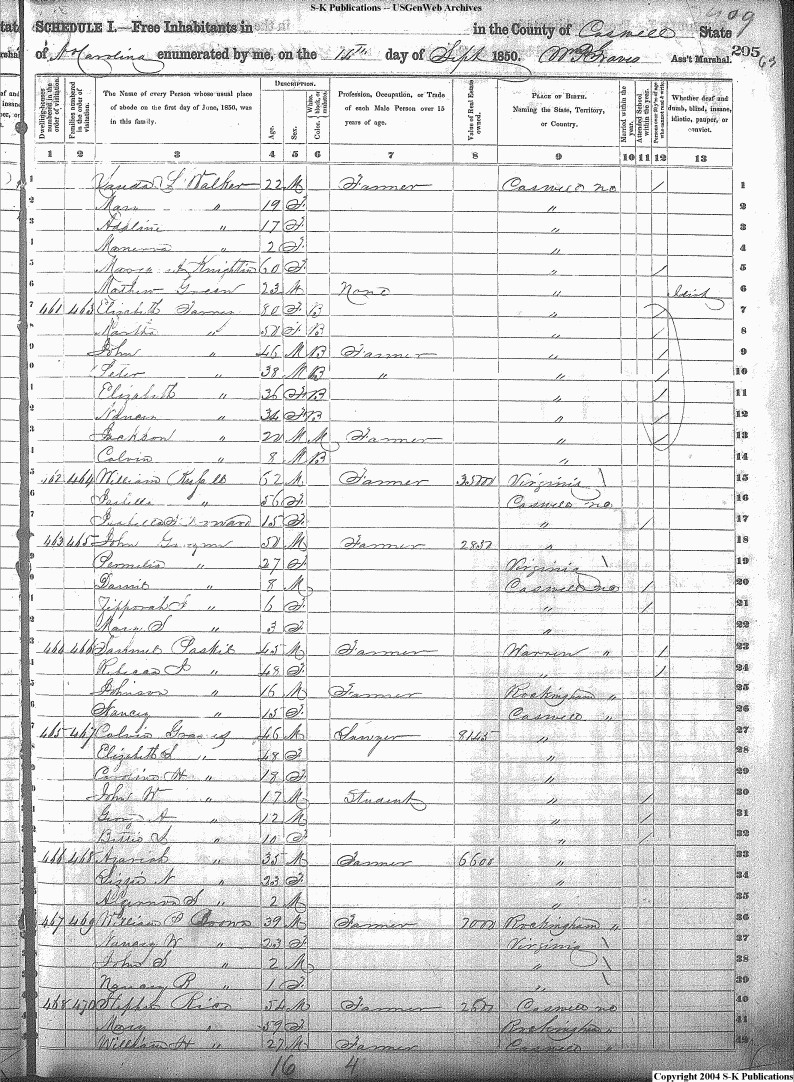 S-K Publications -- USGenWeb Archives
SCHEDULE I.—Free Inhabitants in in the County of Caswell State 295
of N Carolina enumerated by me, on the 14th day of Sept 1850. Wm P Graves Ass't Marshal.
Dwelling-houses numbered in the order of visitation.
Families numbered in the order of visitation.
The Name of every Person whose usual place of abode on the first day of June, 1850, was in this family.
Description.
Age.
Sex.
Color, White, black, or mulatto.
Profession, Occupation, or Trade of each Male Person over 15 years of age.
Value of Real Estate owned.
Place of Birth. Naming the State, Territory, or Country.
Married within the year.
Attended School within the year.
Persons over 20 y'rs of age who cannot read & write.
Whether deaf and dumb, blind, insane, idiotic, pauper, or convict.
1 2 3 4 5 6 7 8 9 10 11 12 13
1 Walker 22 M Farmer Caswell no / 1
2 Mary " 19 F " 2
3 Adaline " 17 F " 3
Manerva " 2 F " 4
60 F " / 5
6 Mathew 23 M None " Idiot 6
7 461 463 Elizabeth Farmer 80 F B " / 7
8 Martha " 50 F B " / 8
9 John " 46 M B Farmer " / 9
10 Peter " 38 M B " " / 10
Elizabeth " 36 F B " / 11
Nancy " 34 F B " / 12
Jackson " 20 M M Farmer " / 13
Calvin " 8 M B " 14
462 464 William 62 M Farmer 3500 Virginia 15
Isabella " 56 F Caswell no 16
Isabella Howard 15 F " / 17
463 465 John 50 M Farmer 2850 " 18
Permelia " 27 F Virginia 19
" 8 M Caswell no / 20
Zipporah F " 6 F " / 21
Mary S " 3 F " 22
464 466 45 M Farmer Warren " / 23
" 48 F " / 24
Johnson " 16 M Farmer Rockingham " 25
Nancy " 15 F Caswell " 26
465 467 Calvin Graves 46 M Lawyer 8145 " 27
Elizabeth L " 48 F " 28
Caroline H " 18 F " 29
John W " 17 M Student " / 30
Geny A " 12 M " / 31
Bettie S " 10 F " / 32
466 468 Azariah " 35 M Farmer 6600 " 33
Lizzie N " 23 F " 34
" 2 M " 35
467 469 William Brown 39 M Farmer 7000 Rockingham " 36
Nancy W " 23 F Virginia 37
John S " 2 M " 38
Nancy R " 1 F " 39
468 470 Stephen Rice 54 M Farmer 2600 Caswell no 40
Mary " 59 F Rockingham " 41
William H " 27 M Farmer Caswell " 42
16 4
Copyright 2004 S-K Publications